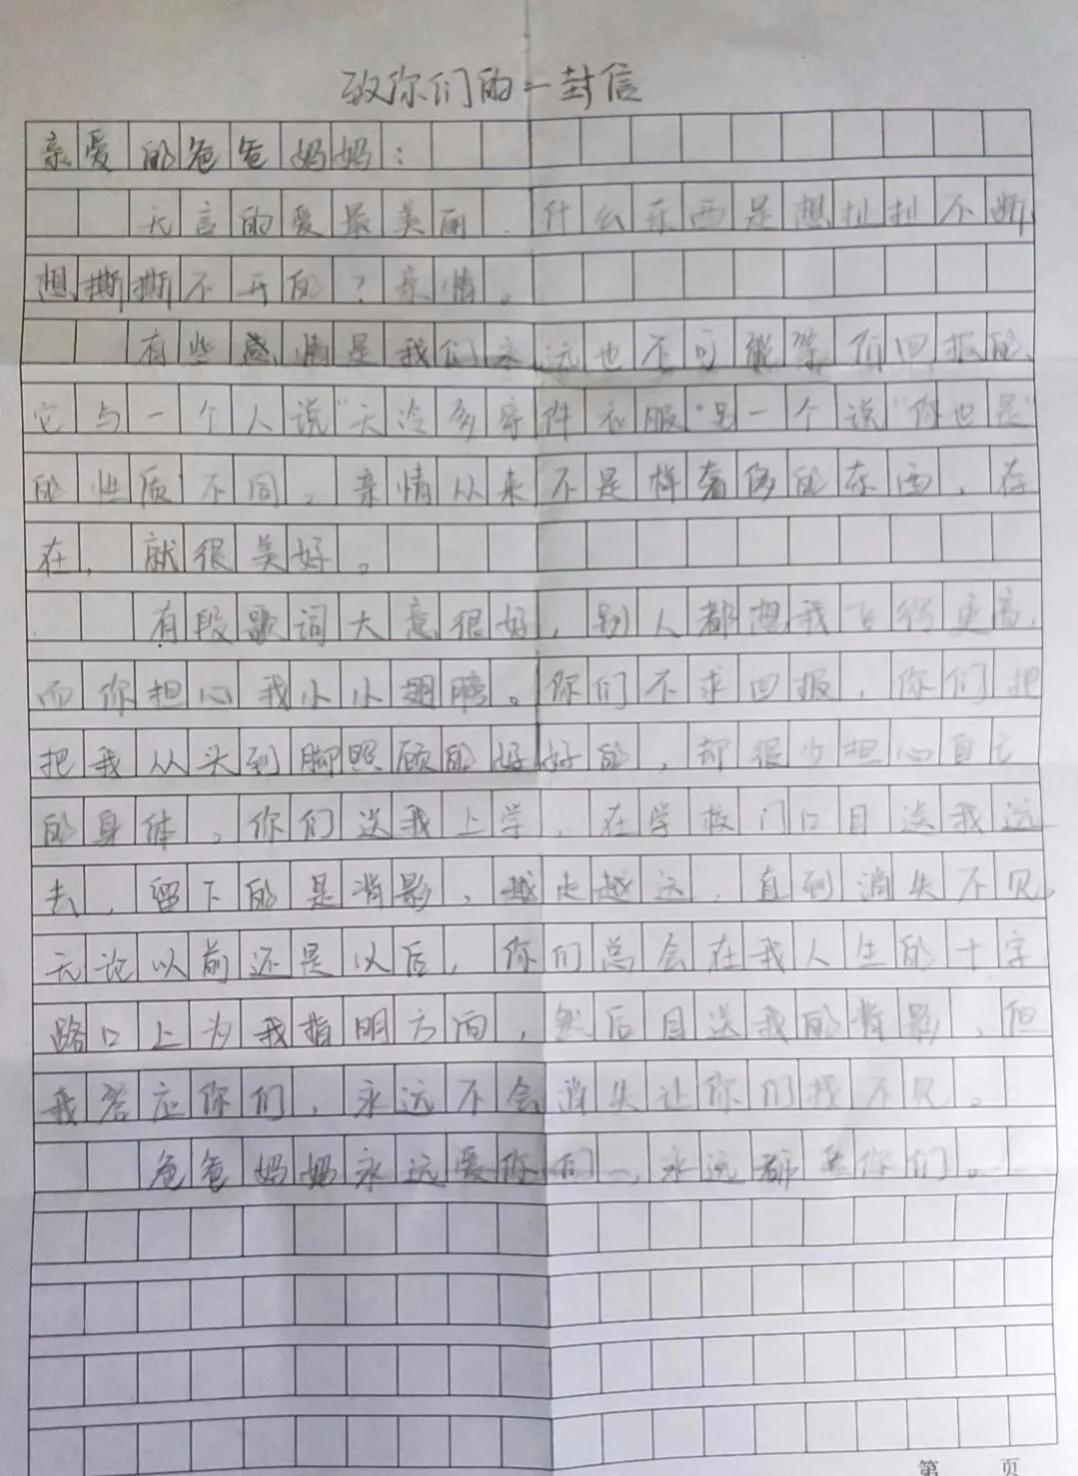 致你们的一封信
亲爱的爸爸妈妈：
无言的爱最美丽．什么东西是想扯扯不断，
想撕撕不开的？亲情。
有些感情是我们永远也不可能等价回报的，
它与一个人说“天冷多穿件衣服”另一个说“你也是”
的性质不同。亲情从来不是样奢侈的东西，存
在，就很美好。
有段歌词大意很好，别人都想我飞得更高，
而你担心我小小翅膀。你们不求回报，你们把
把我从头到脚照顾的好好的，却很少担心自己
的身体，你们送我上学，在学校门口目送我远
去，留下的是背影，越走越远，直到消失不见。
无论以前还是以后，你们总会在我人生的十字
路口上为我指明方向，然后目送我的背影，但
我答应你们，永远不会消失让你们找不见。
爸爸妈妈永远爱你们，永远都是你们。
第 页